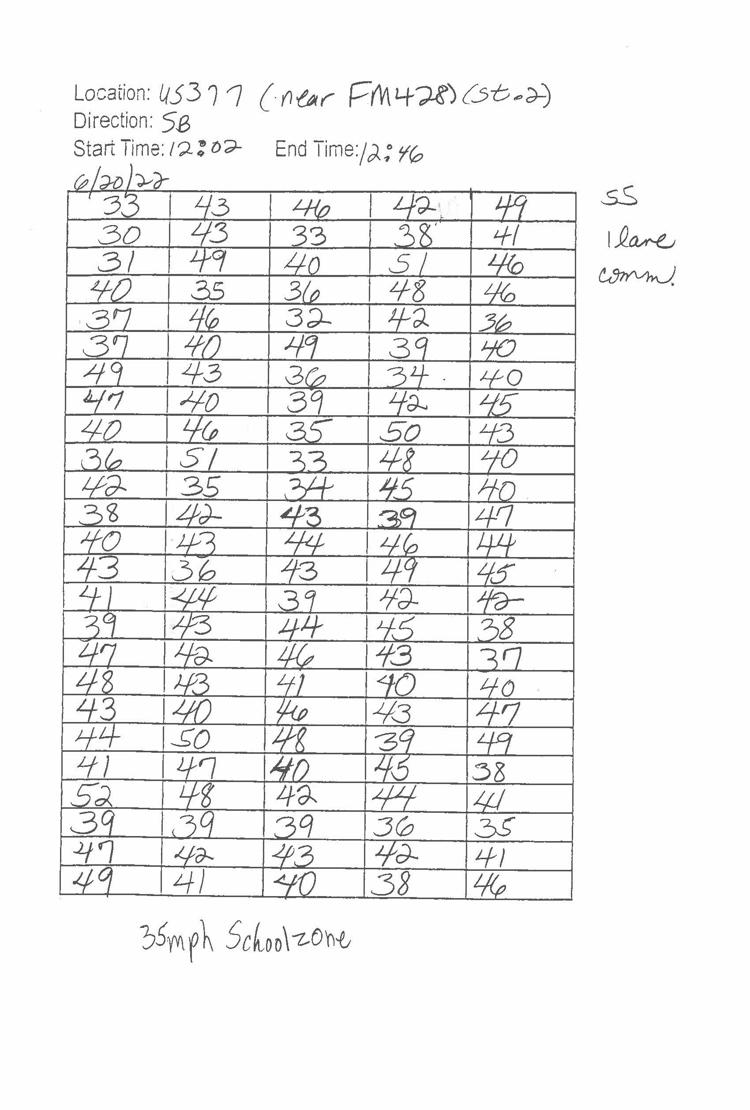 Location: US377 (near FM428) (St.2)
Direction: SB
Start Time: 12:02 End Time: 12:46
6/20/22
33 43 46 42 49 SS
30 43 33 38 41 1 lane
31 49 40 51 46 comm.
40 35 36 48 46
37 46 32 42 36
37 40 49 39 40
49 43 36 34 40
47 40 39 42 45
40 46 35 50 43
36 51 33 48 40
42 35 34 45 40
38 42 43 39 47
40 43 44 46 44
43 36 43 49 45
41 44 39 42 42
39 43 44 45 38
47 42 46 43 37
48 43 41 40 40
43 40 46 43 47
44 50 48 39 49
41 47 40 45 38
52 48 42 44 41
39 39 39 36 35
47 42 43 42 41
49 41 40 38 46
35mph Schoolzone